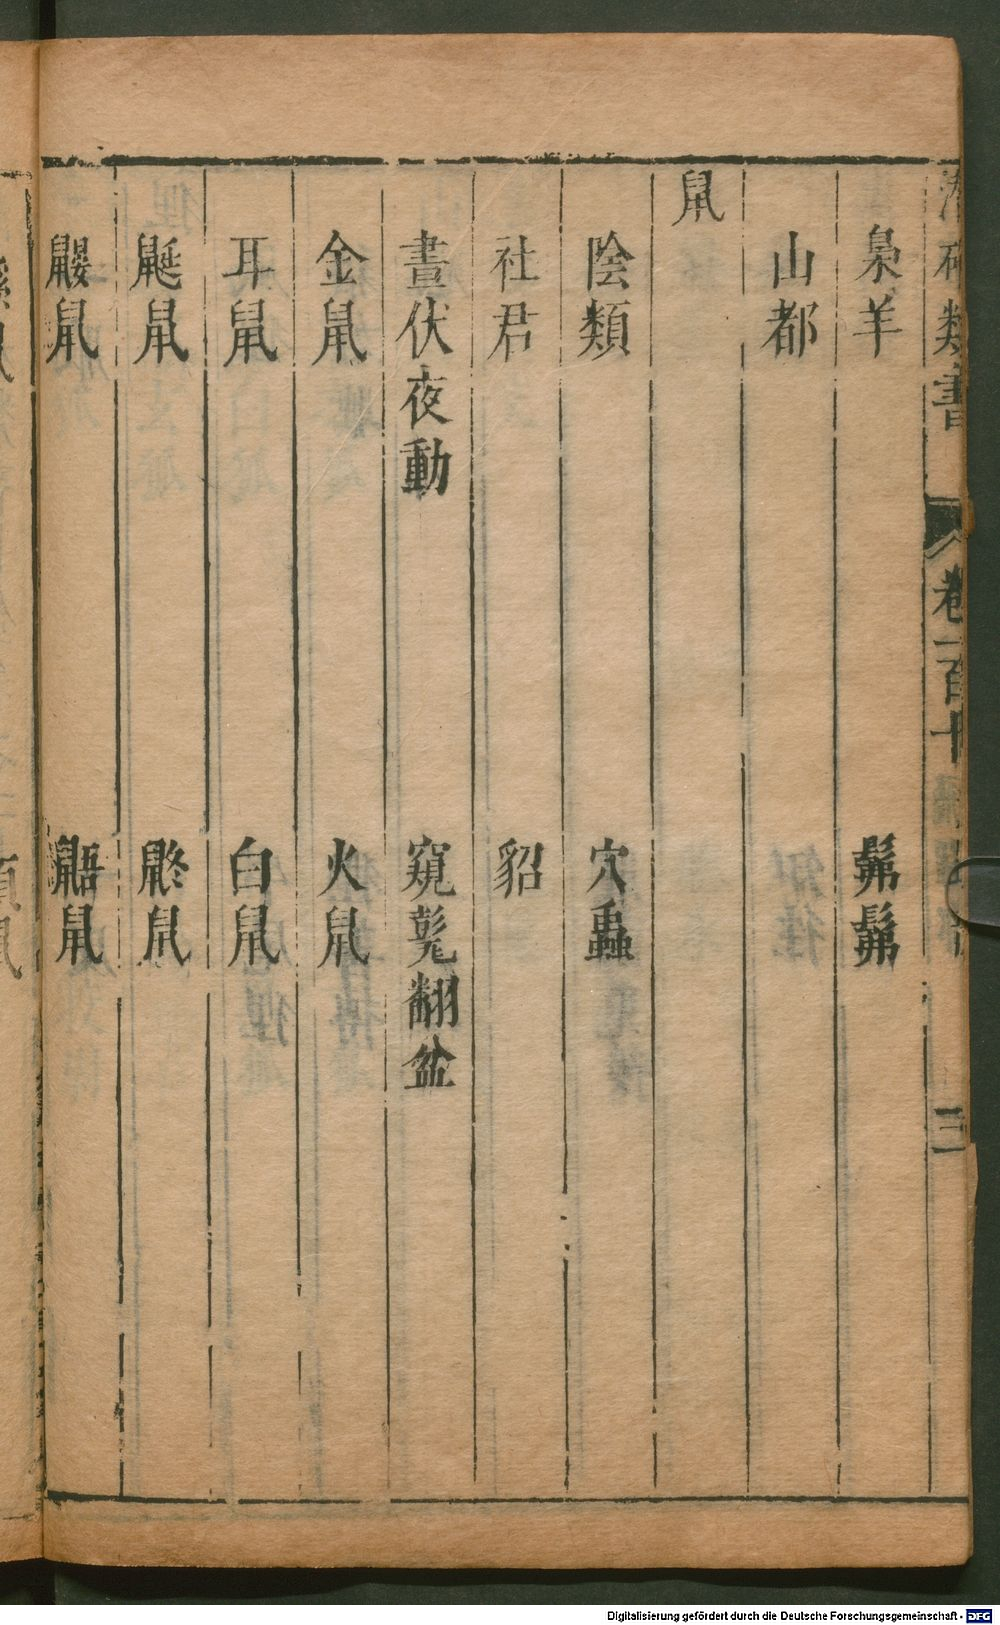 潛確類書 卷一百十 三
梟羊 髴髴
山都
鼠
陰類 穴蟲
社君 貂
晝伏夜動 窺甏翻盆
金鼠 火鼠
耳鼠 白鼠
鼮鼠 鼨鼠
鼹鼠 鼯鼠
Digitalisierung gefördert durch die Deutsche Forschungsgemeinschaft - DFG